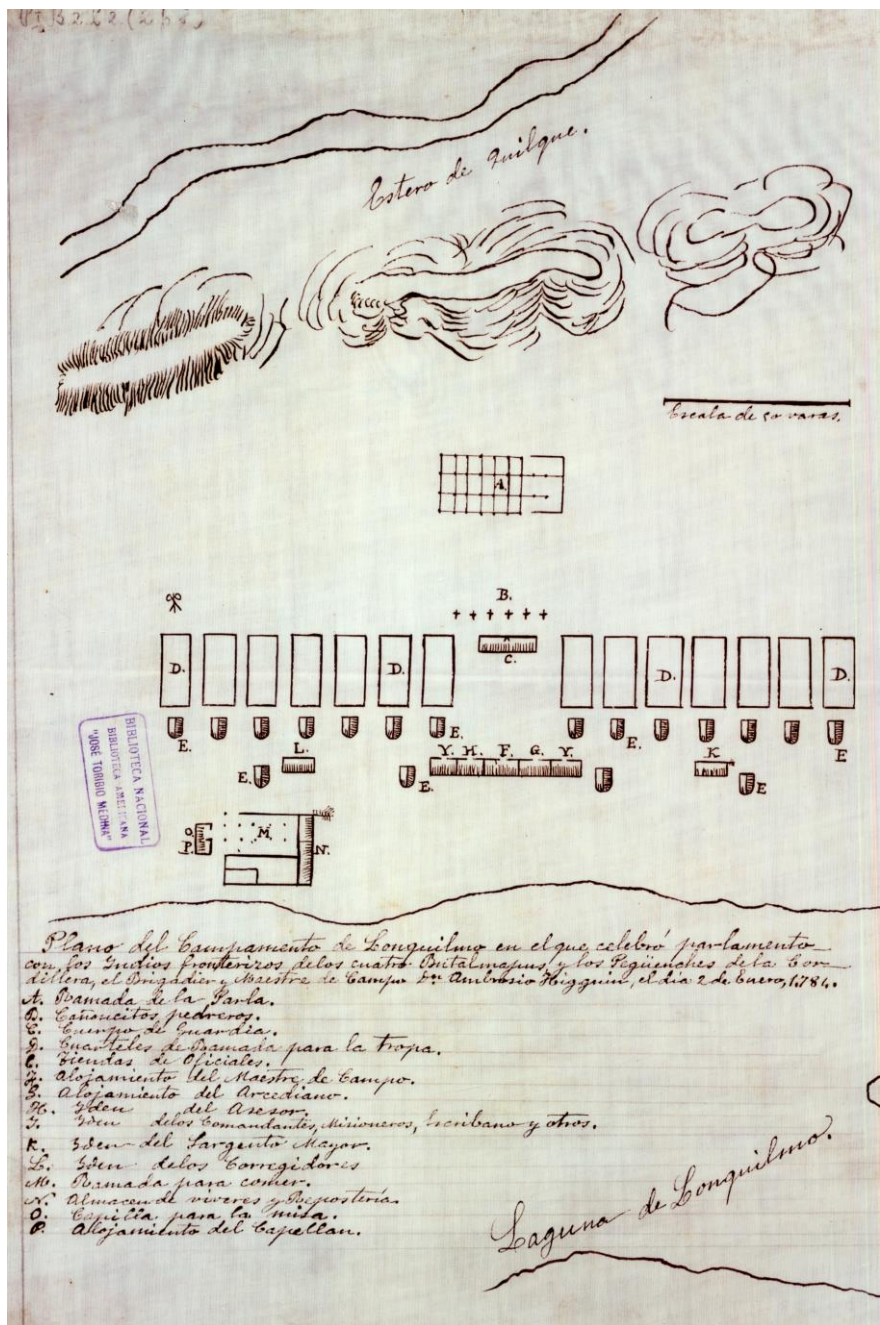 Estero de Quilque.
Escala de 50 varas.
A.
B.
C.
D. D. D. D.
E. E. E. E
L. Y. H. F. G. Y. K
E. E. E
O. M. N.
P.
BIBLIOTECA NACIONAL
BIBLIOTECA AMERICANA
"JOSÉ TORIBIO MEDINA"
Plano del Campamento de Lonquilmo en el que celebró parlamento
con los Indios fronterizos de los cuatro Butalmapus, y los Pegüenches de la Cor-
dillera, el Brigadier y Maestre de Campo Dn Ambrosio Higguin, el dia 2 de Enero, 1784.
A. Ramada de la Parla.
B. Cañoncitos pedreros.
C. Cuerpo de Guardia.
D. Cuarteles de Ramada para la tropa.
E. Tiendas de Oficiales.
F. Alojamiento del Maestre de Campo.
G. Alojamiento del Arcediano.
H. Iden del Asesor.
I. Iden delos Comandantes, Misioneros, Escribano y otros.
K. Iden del Sargento Mayor.
L. Iden delos Corregidores
M. Ramada para comer.
N. Almacen de viveres y Reposteria.
O. Capilla para la misa.
P. Alojamiento del Capellan.
Laguna de Lonquilmo.